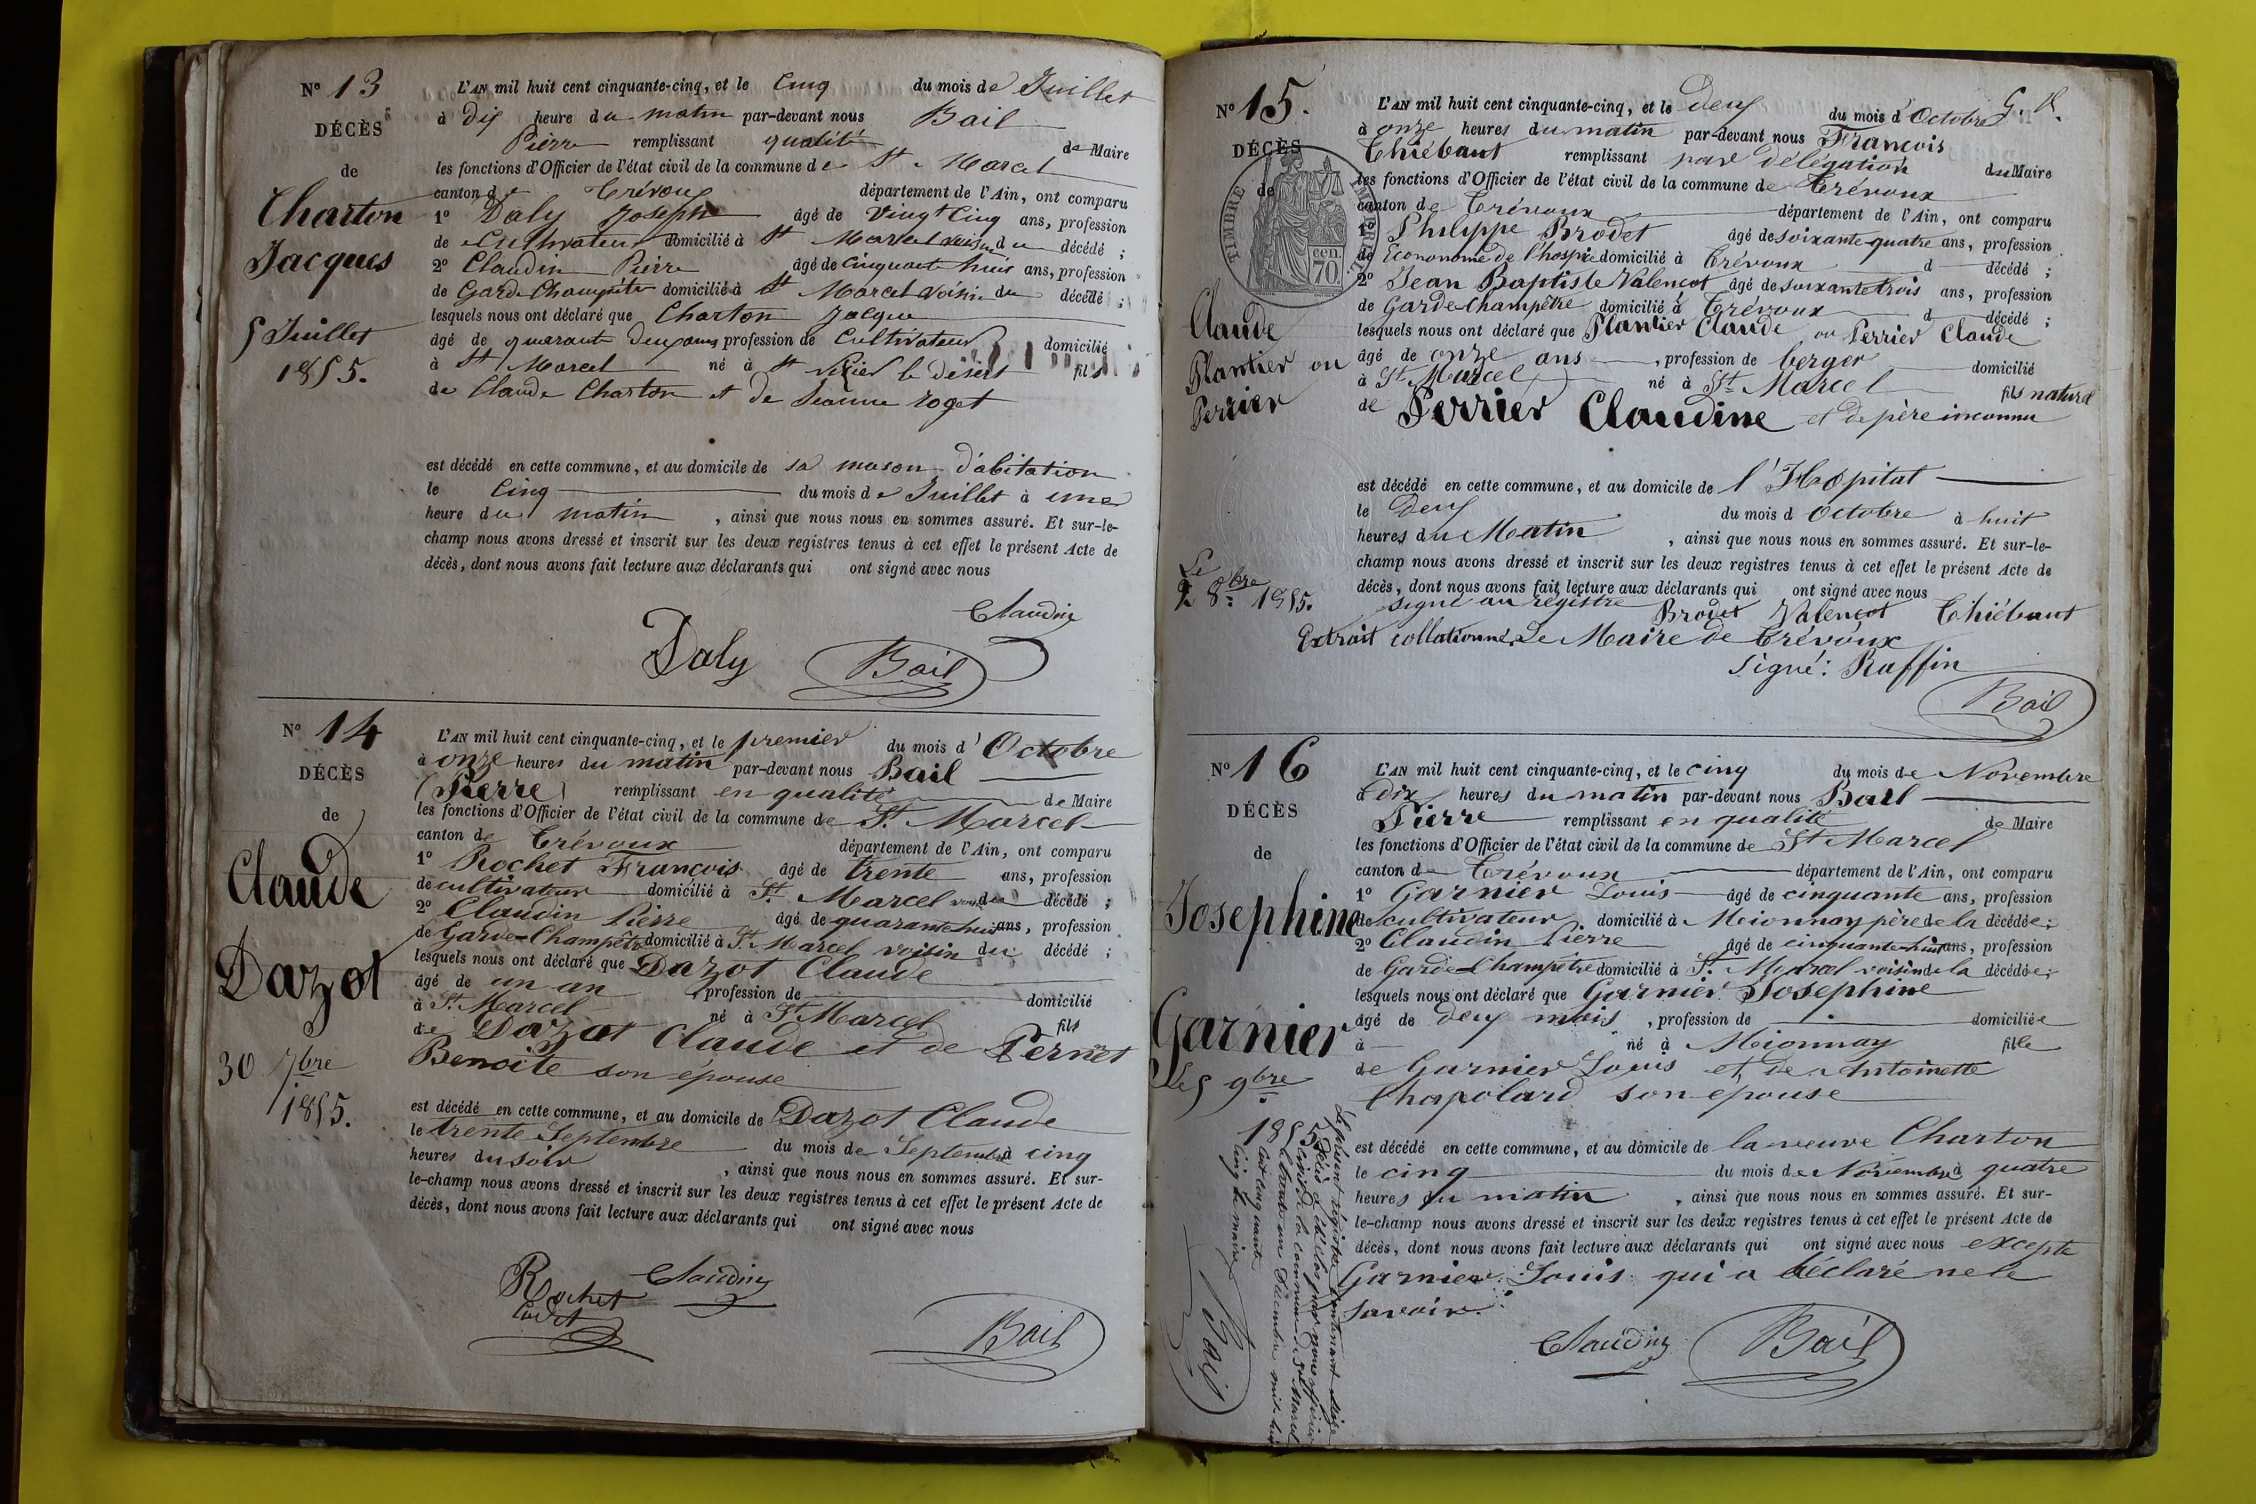 Nº 13
DÉCÈS
de
Charton
Jacques
5 Juillet
1855.
L'AN mil huit cent cinquante-cinq, et le cinq du mois de Juillet
à dix heure du matin par-devant nous Bail
Pierre remplissant qualité de Maire
les fonctions d'Officier de l'état civil de la commune de St Marcel
canton de Trévoux département de l'Ain, ont comparu
1º Daly Joseph âgé de vingt cinq ans, profession
de Cultivateur domicilié à St Marcel voisin du décédé ;
2º Claudin Pierre âgé de cinquante huit ans, profession
de Garde Champêtre domicilié à St Marcel voisin du décédé ;
lesquels nous ont déclaré que Charton Jacque
âgé de quarante deux ans profession de Cultivateur domicilié
à St Marcel né à St le désert fils
de Claude Charton et de Jeanne roget
est décédé en cette commune, et au domicile de sa mason d'abitation
le cinq du mois de Juillet à une
heure du matin, ainsi que nous nous en sommes assuré. Et sur-le-
champ nous avons dressé et inscrit sur les deux registres tenus à cet effet le présent Acte de
décès, dont nous avons fait lecture aux déclarants qui ont signé avec nous
Claudin
Daly Bail
Nº 14
DÉCÈS
de
Claude
Dazot
30 7bre
1855.
L'AN mil huit cent cinquante-cinq, et le premier du mois d'Octobre
à onze heures du matin par-devant nous Bail
(Pierre) remplissant en qualité de Maire
les fonctions d'Officier de l'état civil de la commune de St. Marcel
canton de Trévoux département de l'Ain, ont comparu
1º Rochet François âgé de trente ans, profession
de cultivateur domicilié à St. Marcel voisin du décédé ;
2º Claudin Pierre âgé de quarante huit ans, profession
de Garde-Champêtre domicilié à St. Marcel voisin du décédé ;
lesquels nous ont déclaré que Dazot Claude
âgé de un an, profession de domicilié
à St. Marcel né à St Marcel fils
de Dazot Claude et de Pernet
Benoite son épouse
est décédé en cette commune, et au domicile de Dazot Claude
le trente Septembre du mois de Septembre à cinq
heures du soir, ainsi que nous nous en sommes assuré. Et sur-
le-champ nous avons dressé et inscrit sur les deux registres tenus à cet effet le présent Acte de
décès, dont nous avons fait lecture aux déclarants qui ont signé avec nous
Rochet Claudin
cadet
Bail
Nº 15.
DÉCÈS
de
TIMBRE IMPÉRIAL
70 cen.
Claude
Plantier ou
Perrier
Le
2 8bre 1855.
L'AN mil huit cent cinquante-cinq, et le deux du mois d'Octobre
à onze heures du matin par-devant nous François
Thiébaut remplissant par délégation du Maire
les fonctions d'Officier de l'état civil de la commune de Trévoux
canton de Trévoux département de l'Ain, ont comparu
1º Philippe Brodet âgé de soixante-quatre ans, profession
de Econonome de l'hospice domicilié à Trévoux d décédé ;
2º Jean Baptiste Valencot âgé de soixante trois ans, profession
de Garde-Champêtre domicilié à Trévoux d décédé ;
lesquels nous ont déclaré que Plantier Claude ou Perrier Claude
âgé de onze ans, profession de berger domicilié
à St Marcel né à St Marcel fils naturel
de Perrier Claudine et de père inconnu
est décédé en cette commune, et au domicile de l'Hôpital
le deux du mois d Octobre à huit
heures du Matin, ainsi que nous nous en sommes assuré. Et sur-le-
champ nous avons dressé et inscrit sur les deux registres tenus à cet effet le présent Acte de
décès, dont nous avons fait lecture aux déclarants qui ont signé avec nous
signé au registre Brodet Valencot Thiébaut
Extrait collationné. Le Maire de Trévoux
Signé : Raffin
Bail
Nº 16
DÉCÈS
de
Josephine
Garnier
Le 5 9bre
1855
L'AN mil huit cent cinquante-cinq, et le cinq du mois de Novembre
à dix heures du matin par-devant nous Bail
Pierre remplissant en qualité de Maire
les fonctions d'Officier de l'état civil de la commune de St Marcel
canton de Trévoux département de l'Ain, ont comparu
1º Garnier Louis âgé de cinquante ans, profession
de cultivateur domicilié à Mionnay père de la décédée ;
2º Claudin Pierre âgé de cinquante-huit ans, profession
de Garde-Champêtre domicilié à St. Marcel voisin de la décédée ;
lesquels nous ont déclaré que Garnier Josephine
âgé de deux mois, profession de domiciliée
à né à Mionnay fille
de Garnier Louis et de Antoinette
Chapolard son épouse
est décédé en cette commune, et au domicile de la veuve Charton
le cinq du mois de Novembre à quatre
heures du matin, ainsi que nous nous en sommes assuré. Et sur-
le-champ nous avons dressé et inscrit sur les deux registres tenus à cet effet le présent Acte de
décès, dont nous avons fait lecture aux déclarants qui ont signé avec nous excepté
Garnier Louis qui a déclaré ne le
savoir.
Claudin Bail
Le présent registre contenant seize
décès a été clos par nous officier
civil de la commune de St Marcel
le trente un Décembre mil huit
cent cinquante
cinq Le maire
Bail